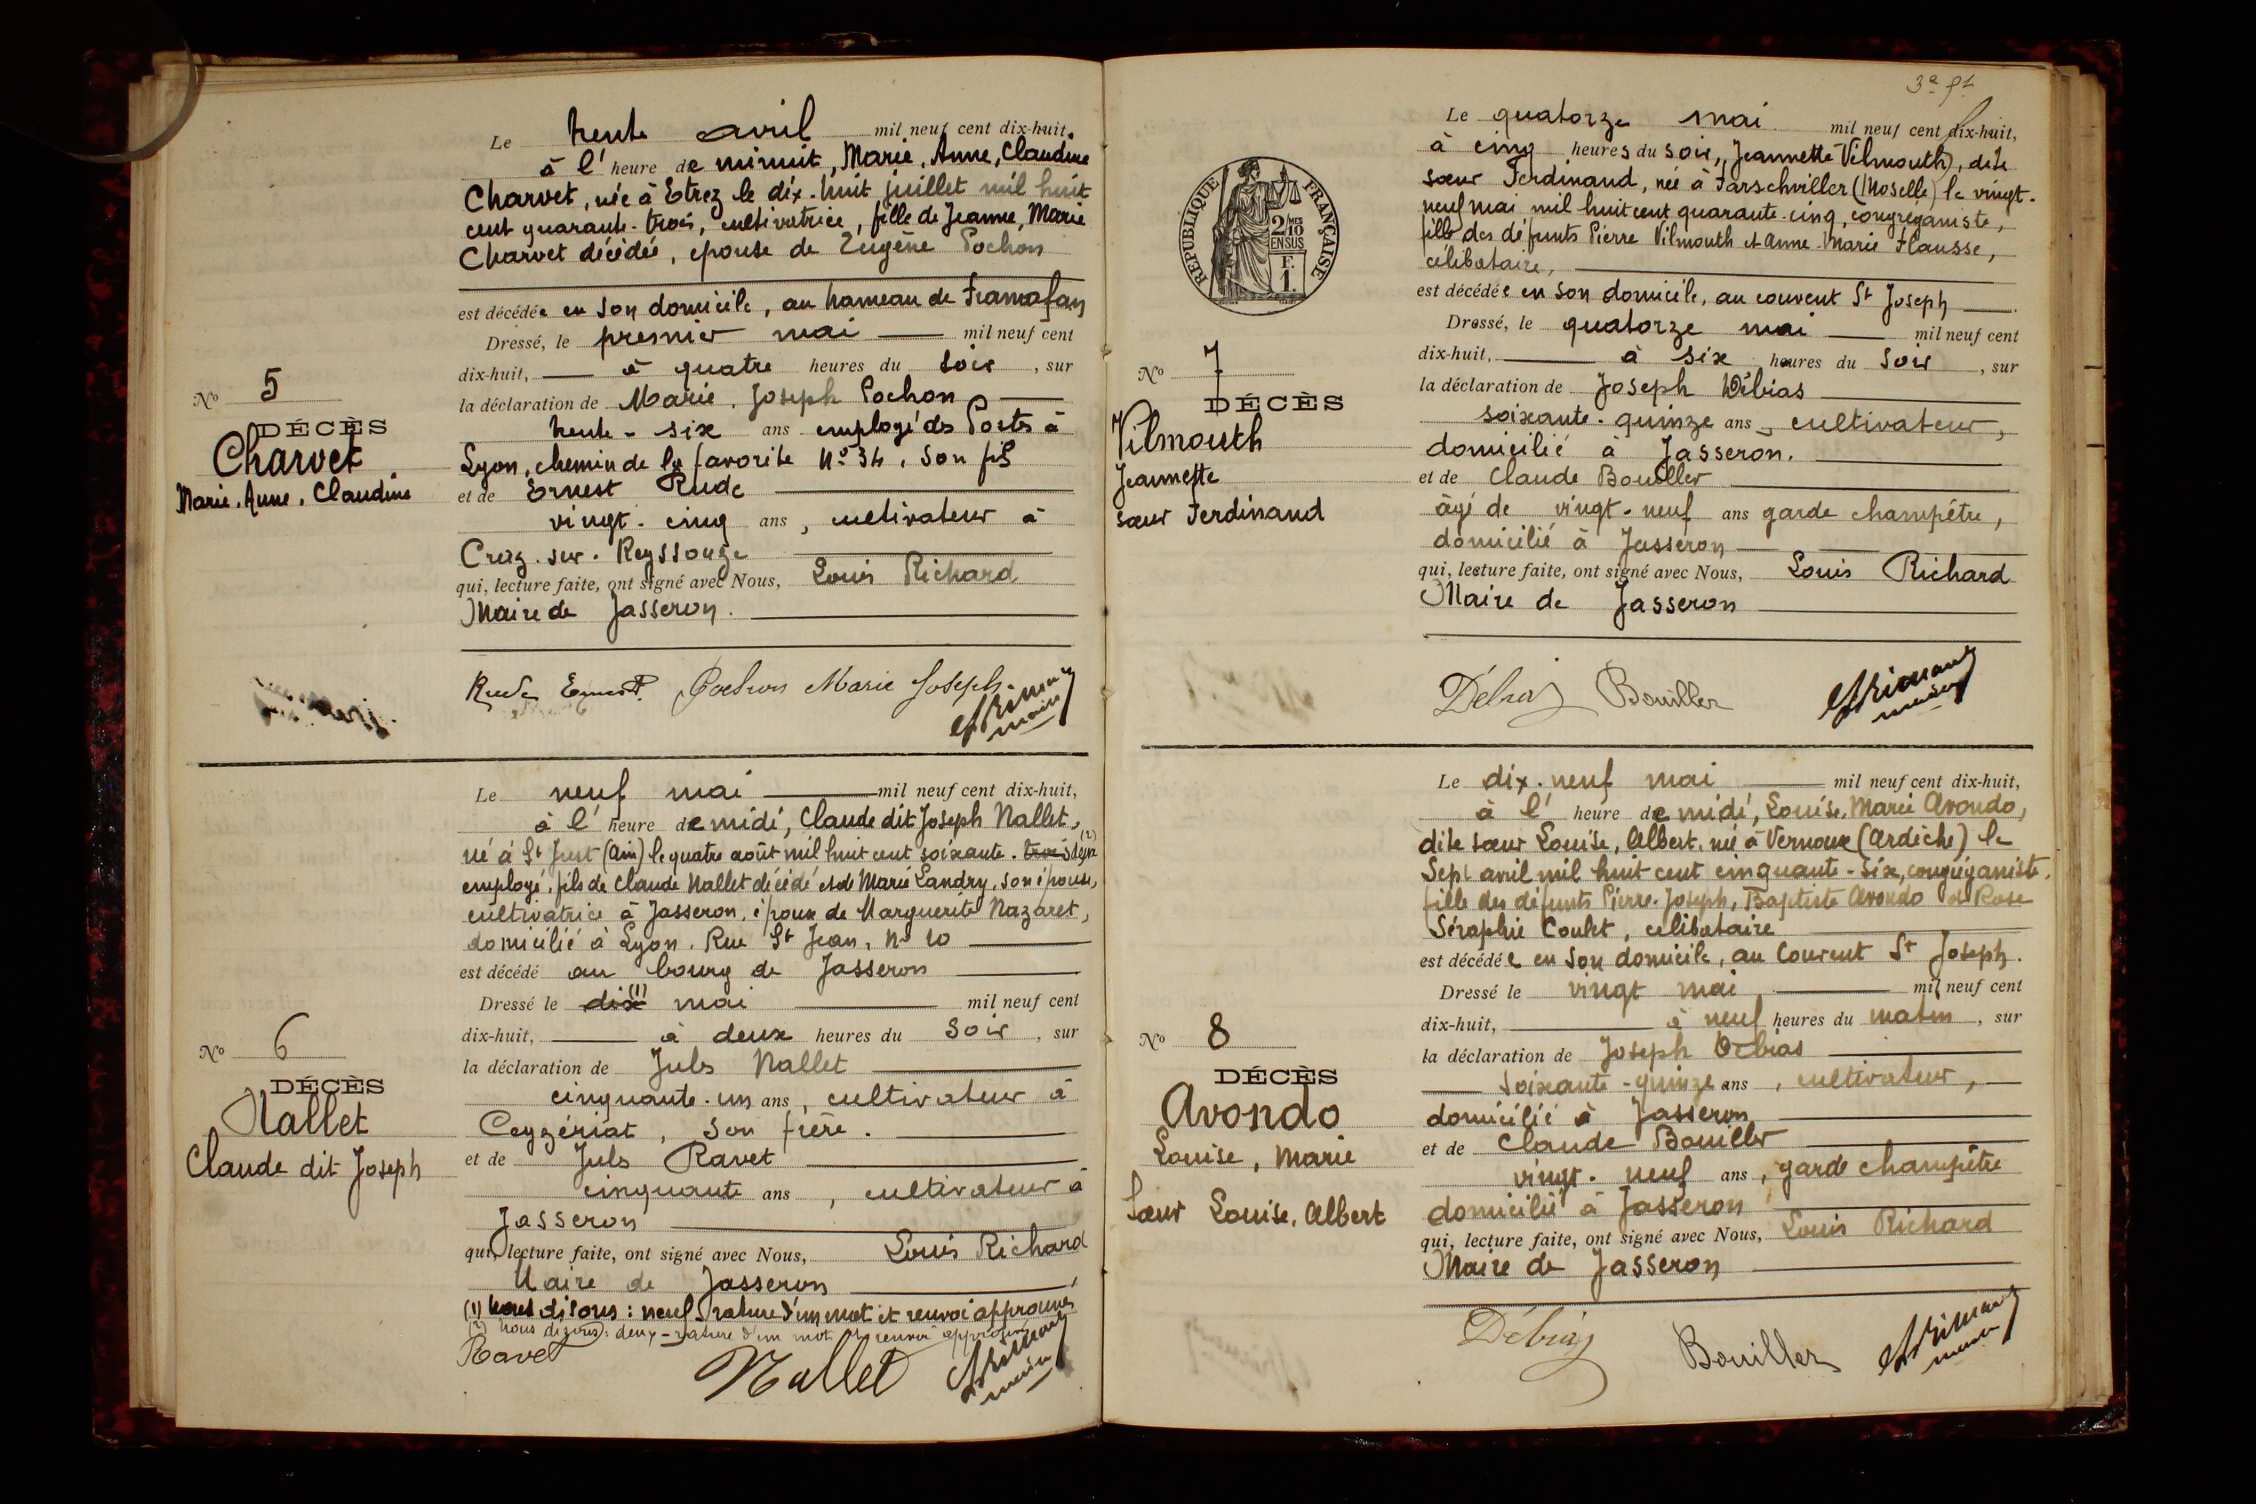 Le trente avril mil neuf cent dix-huit,
à l'heure de minuit, Marie, Anne, Claudine
Charvet, née à Etrez le dix-huit juillet mil huit
cent quarante-trois, cultivatrice, fille de Jeanne, Marie
Charvet décédée, épouse de Eugène Pochon
est décédée en son domicile, au hameau de Tramafan
Dressé, le premier mai mil neuf cent
dix-huit, à quatre heures du soir, sur
No 5
la déclaration de Marie, Joseph Pochon
DÉCÈS
trente-six ans employé des Postes à
Charvet
Lyon, chemin de la favorite No 34, son fils
Marie, Anne, Claudine
et de Ernest Rude
vingt-cinq ans, cultivateur à
Cras-sur-Reyssouze
qui, lecture faite, ont signé avec Nous, Louis Richard
Maire de Jasseron.
Rude Ernest Pochon Marie Joseph
maire
Le neuf mai mil neuf cent dix-huit,
à l'heure de midi, Claude dit Joseph Nallet,
né à St Just (Ain) le quatre août mil huit cent soixante-trois (2)
employé, fils de Claude Nallet décédé et de Marie Landry, son épouse,
cultivatrice à Jasseron, époux de Marguerite Nazaret,
domicilié à Lyon, Rue St Jean, No 10
est décédé au bourg de Jasseron
Dressé le dix (1) mai mil neuf cent
dix-huit, à deux heures du soir, sur
No 6
la déclaration de Jules Nallet
DÉCÈS
cinquante-un ans, cultivateur à
Nallet
Ceyzériat, son frère.
Claude dit Joseph
et de Jules Ravet
cinquante ans, cultivateur à
Jasseron
qui, lecture faite, ont signé avec Nous, Louis Richard
Maire de Jasseron
(1) Nous disons: neuf, rature d'un mot et renvoi approuvés
(2) nous disons: deux - rature d'un mot et renvoi approuvés
Ravet
Nallet
maire
3e ft
Le quatorze mai mil neuf cent dix-huit,
à cinq heures du soir, Jeannette Vilmouth, dite
sœur Ferdinand, née à Farschviller (Moselle) le vingt-
neuf mai mil huit cent quarante-cinq, congréganiste,
fille des défunts Pierre Vilmouth et Anne-Marie Flausse,
célibataire,
RÉPUBLIQUE FRANÇAISE
2/10 MES
EN SUS
F.
1.
est décédée en son domicile, au couvent St Joseph
Dressé, le quatorze mai mil neuf cent
dix-huit, à six heures du soir, sur
No 7
la déclaration de Joseph Débias
DÉCÈS
soixante-quinze ans, cultivateur,
Vilmouth
domicilié à Jasseron.
Jeannette
et de Claude Bouiller
sœur Ferdinand
âgé de vingt-neuf ans garde champêtre,
domicilié à Jasseron
qui, lecture faite, ont signé avec Nous, Louis Richard
Maire de Jasseron
Débias Bouiller
maire
Le dix-neuf mai mil neuf cent dix-huit,
à l'heure de midi, Louise, Marie Avondo,
dite sœur Louise, Albert, née à Vernoux (Ardèche) le
Sept avril mil huit cent cinquante-six, congréganiste,
fille des défunts Pierre-Joseph, Baptiste Avondo et Rose
Séraphie Coulet, célibataire
est décédée en son domicile, au Couvent St Joseph.
Dressé le vingt mai mil neuf cent
dix-huit, à neuf heures du matin, sur
No 8
la déclaration de Joseph Débias
DÉCÈS
soixante-quinze ans, cultivateur,
Avondo
domicilié à Jasseron
Louise, Marie
et de Claude Bouiller
vingt-neuf ans, garde champêtre
Sœur Louise, Albert
domicilié à Jasseron
qui, lecture faite, ont signé avec Nous, Louis Richard
Maire de Jasseron
Débias
Bouiller
maire